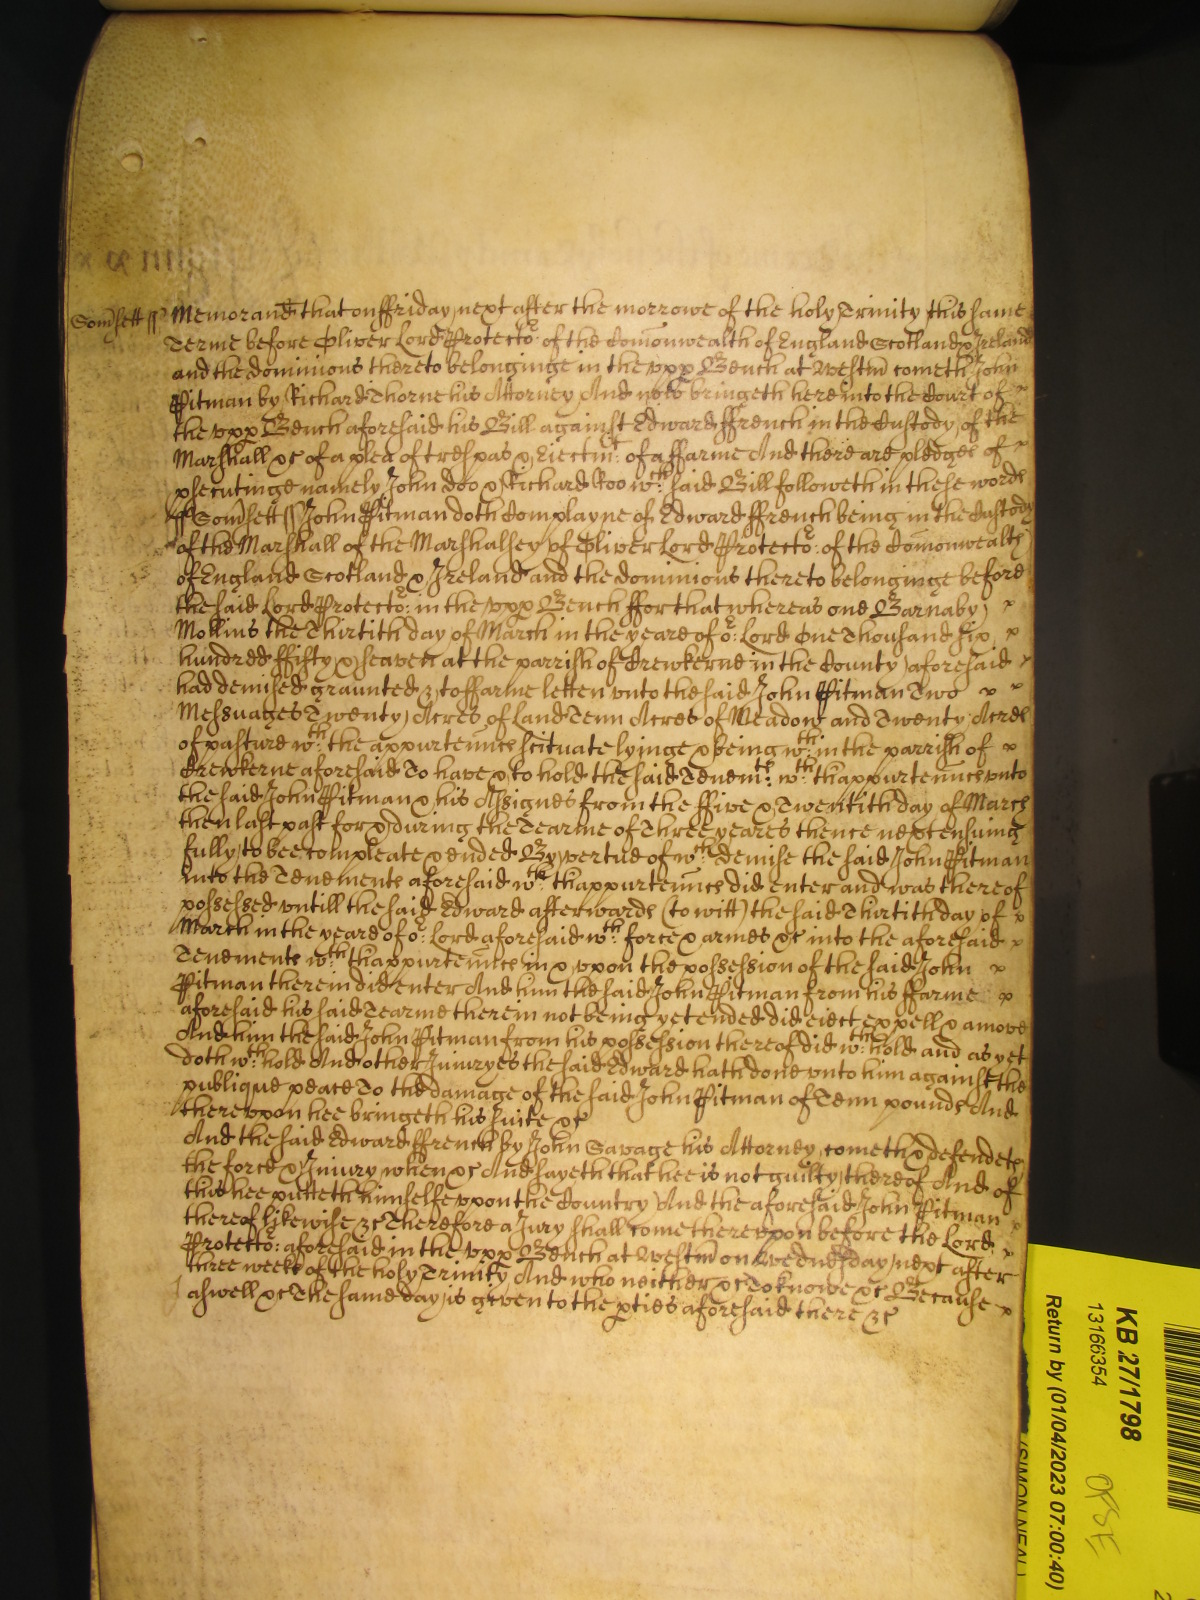 Som̃sett ss Memorand̃ that on ffriday next after the morrowe of the holy Trinity this same
Terme before Oliver Lord Protecto:r of the Com̃onwealth of England Scotland & Ireland
and the dominions thereto belonginge in the vpp Bench at Westm̃ cometh John
Pitman by Richard Thorne his Attorney And now bringeth here into the Court of
the vpp Bench aforesaid his Bill against Edward ffrench in the Custody of the
Marshall &c of a plea of trespas & Eiectm:t of a ffarme And there are pledges of
psecutinge namely John Doo & Richard Roo w:ch said Bill followeth in these words
ss Som̃sett ss John Pitman doth Complayne of Edward ffrench being in the Custody
of the Marshall of the Marshalsey of Oliver Lord Protecto:r of the Com̃onwealth
of England Scotland & Ireland and the dominions thereto belonginge before
the said Lord Protecto:r in the vpp Bench ffor that whereas one Barnaby
Mokins the Thirtith day of March in the yeare of o:r Lord One Thousand six
hundred ffifty & seaven at the parrish of Crewkerne in the County aforesaid
had demised graunted & to ffarme letten vnto the said John Pitman Two
Messuages Twenty Acres of Land Tenn Acres of Meadow and Twenty Acres
of pasture w:th the appurteñnces scituate lyinge & being w:th in the parrish of
Crewkerne aforesaid To have & to hold the said Tenem:ts w:th thappurteñnces vnto
the said John Pitman & his Assignes from the ffive & Twentith day of March
then last past for & during the Tearme of Three yeares thence next ensuing
fully to bee compleate & ended By vertue of w:ch demise the said John Pitman
into the Tenements aforesaid w:th thappurteñnces did enter and was thereof
possessed vntill the said Edward afterwards (to witt) the said Thirtith day of
March in the yeare of o:r Lord aforesaid w:th force & armes &c into the aforesaid
Tenements w:th thappurteñnces in & vpon the possession of the said John
Pitman therein did enter And him the said John Pitman from his ffarme
aforesaid his said Tearme therein not being yet ended did eiect expell & amove
And him the said John Pitman from his possession thereof did w:th hold and as yet
doth w:th hold And other Iniuryes the said Edward hath done vnto him against the
publique peace To the damage of the said John Pitman of Tenn pounds And
therevpon hee bringeth his suite &c
And the said Edward ffrench by John Savage his Attorney cometh & defendeth
the force & Iniury when &c And sayeth that hee is not guilty thereof And of
this hee putteth himselfe vpon the Country And the aforesaid John Pitman
thereof likewise &c Therefore a Jury shall come therevpon before the Lord
Protecto:r aforesaid in the vpp Bench at Westm̃ on Wednesday next after
three weeks of the holy Trinity And who neither &c To knowe &c Because
aswell &c The same day is given to the pties aforesaid there &c
KB 27/1798
13166354
Return by (01/04/2023 07:00:40)
(SIMON NEAL)